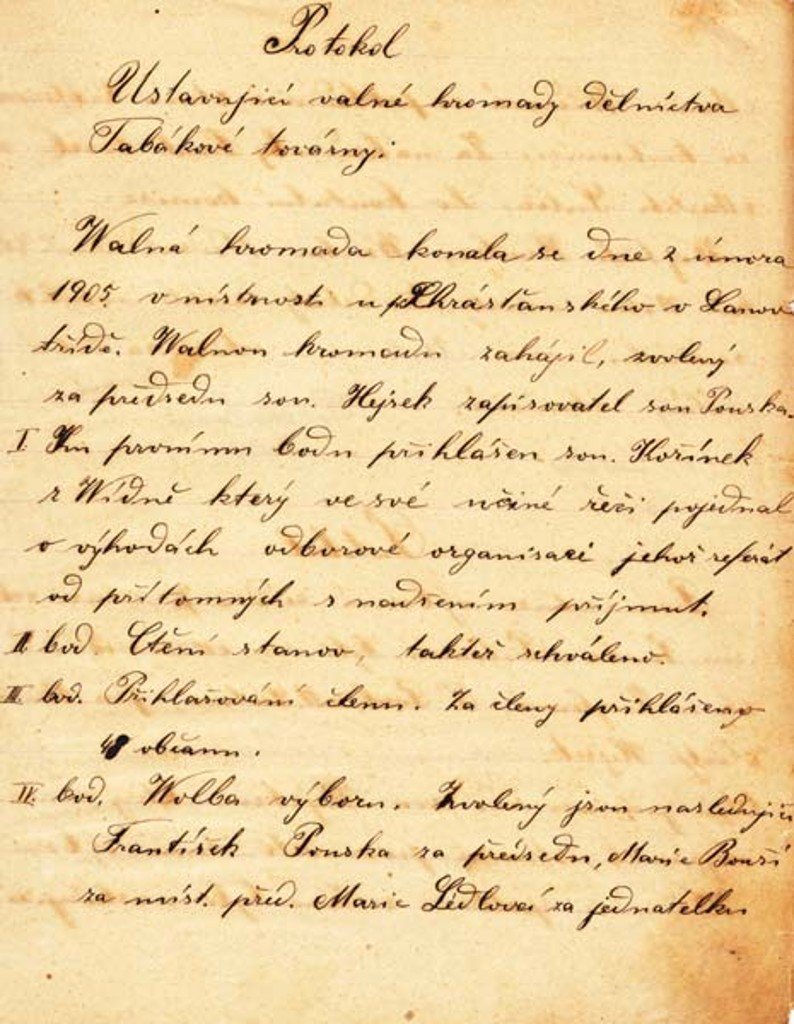 Protokol
Ustavující valné hromady dělnictva
Tabákové továrny.
Walná hromada konala se dne 2 února
1905. v místnosti u p Chrášťanského v Lanov
třídě. Walnou hromadu zahájil, zvolený
za předsedu sou. Hejsek zapisovatel sou Pouska.
I Ku prvnímu bodu přihlášen sou. Kořínek
z Wídně který ve své učiné řeči pojednal
o výhodách odborové organisaci jehož referát
od přítomných s nadšením příjmut.
II bod. Čtění stanov, taktéž schváleno.
III. bod. Přihlašování členu. Za členy přihlášeno
48 občanu.
IV. bod. Wolba výboru. Zvolený jsou nasledující
František Pouska za předsedu, Marie
za míst. před. Marie za jednatelku